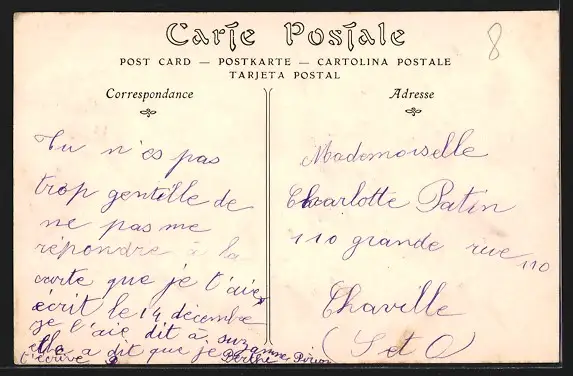 Carte Postale
8
POST CARD — POSTKARTE — CARTOLINA POSTALE
TARJETA POSTAL
Correspondance
Tu n'es pas
trop gentille de
ne pas me
répondre à la
carte que je t'aie
écrit le 14 décembre
je l'aie dit à suzanne
elle a dit que je
t'écrive Berthe
Adresse
Mademoiselle
Charlotte Patin
110 grande rue 110
Chaville
(S et O)